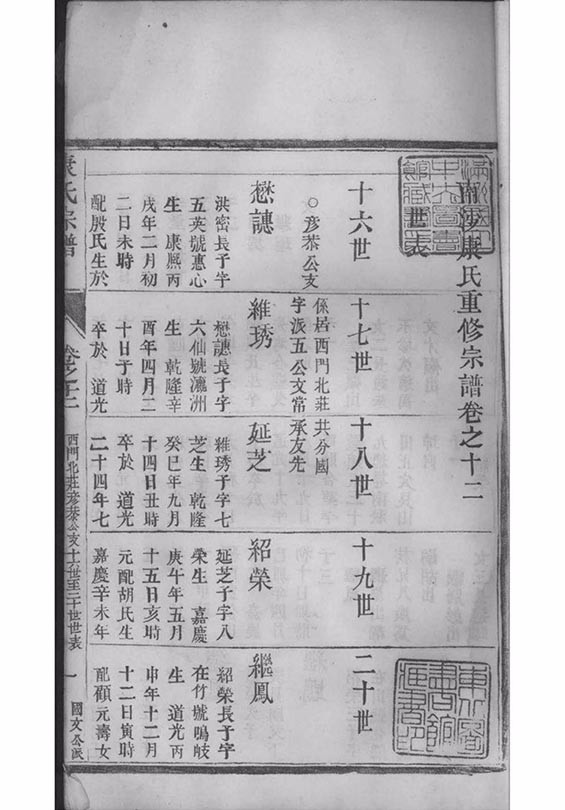 南沙康氏重修宗譜卷之十二
世表
十六世
十七世
十八世
十九世
二十世
○彥恭公支
係居西門北莊
共分國
字派五公文常
承友先
懋譓
洪密長子字
五英號惠心
生 康熙丙
戌年二月初
二日未時
配殷氏生於
維琇
懋譓長子字
六仙號瀛洲
生 乾隆辛
酉年四月二
十日子時
卒於 道光
延芝
維琇子字七
芝生 乾隆
癸巳年九月
十四日丑時
卒於 道光
二十四年七
紹榮
延芝子字八
榮生 嘉慶
庚午年五月
十五日亥時
元配胡氏生
嘉慶辛未年
繼鳳
紹榮長子字
在竹號鳴岐
生 道光丙
申年十二月
十二日寅時
配顧元壽女
康氏宗譜
卷之十二
西門北莊彥恭公支十六世至二十世世表
一
國文公派